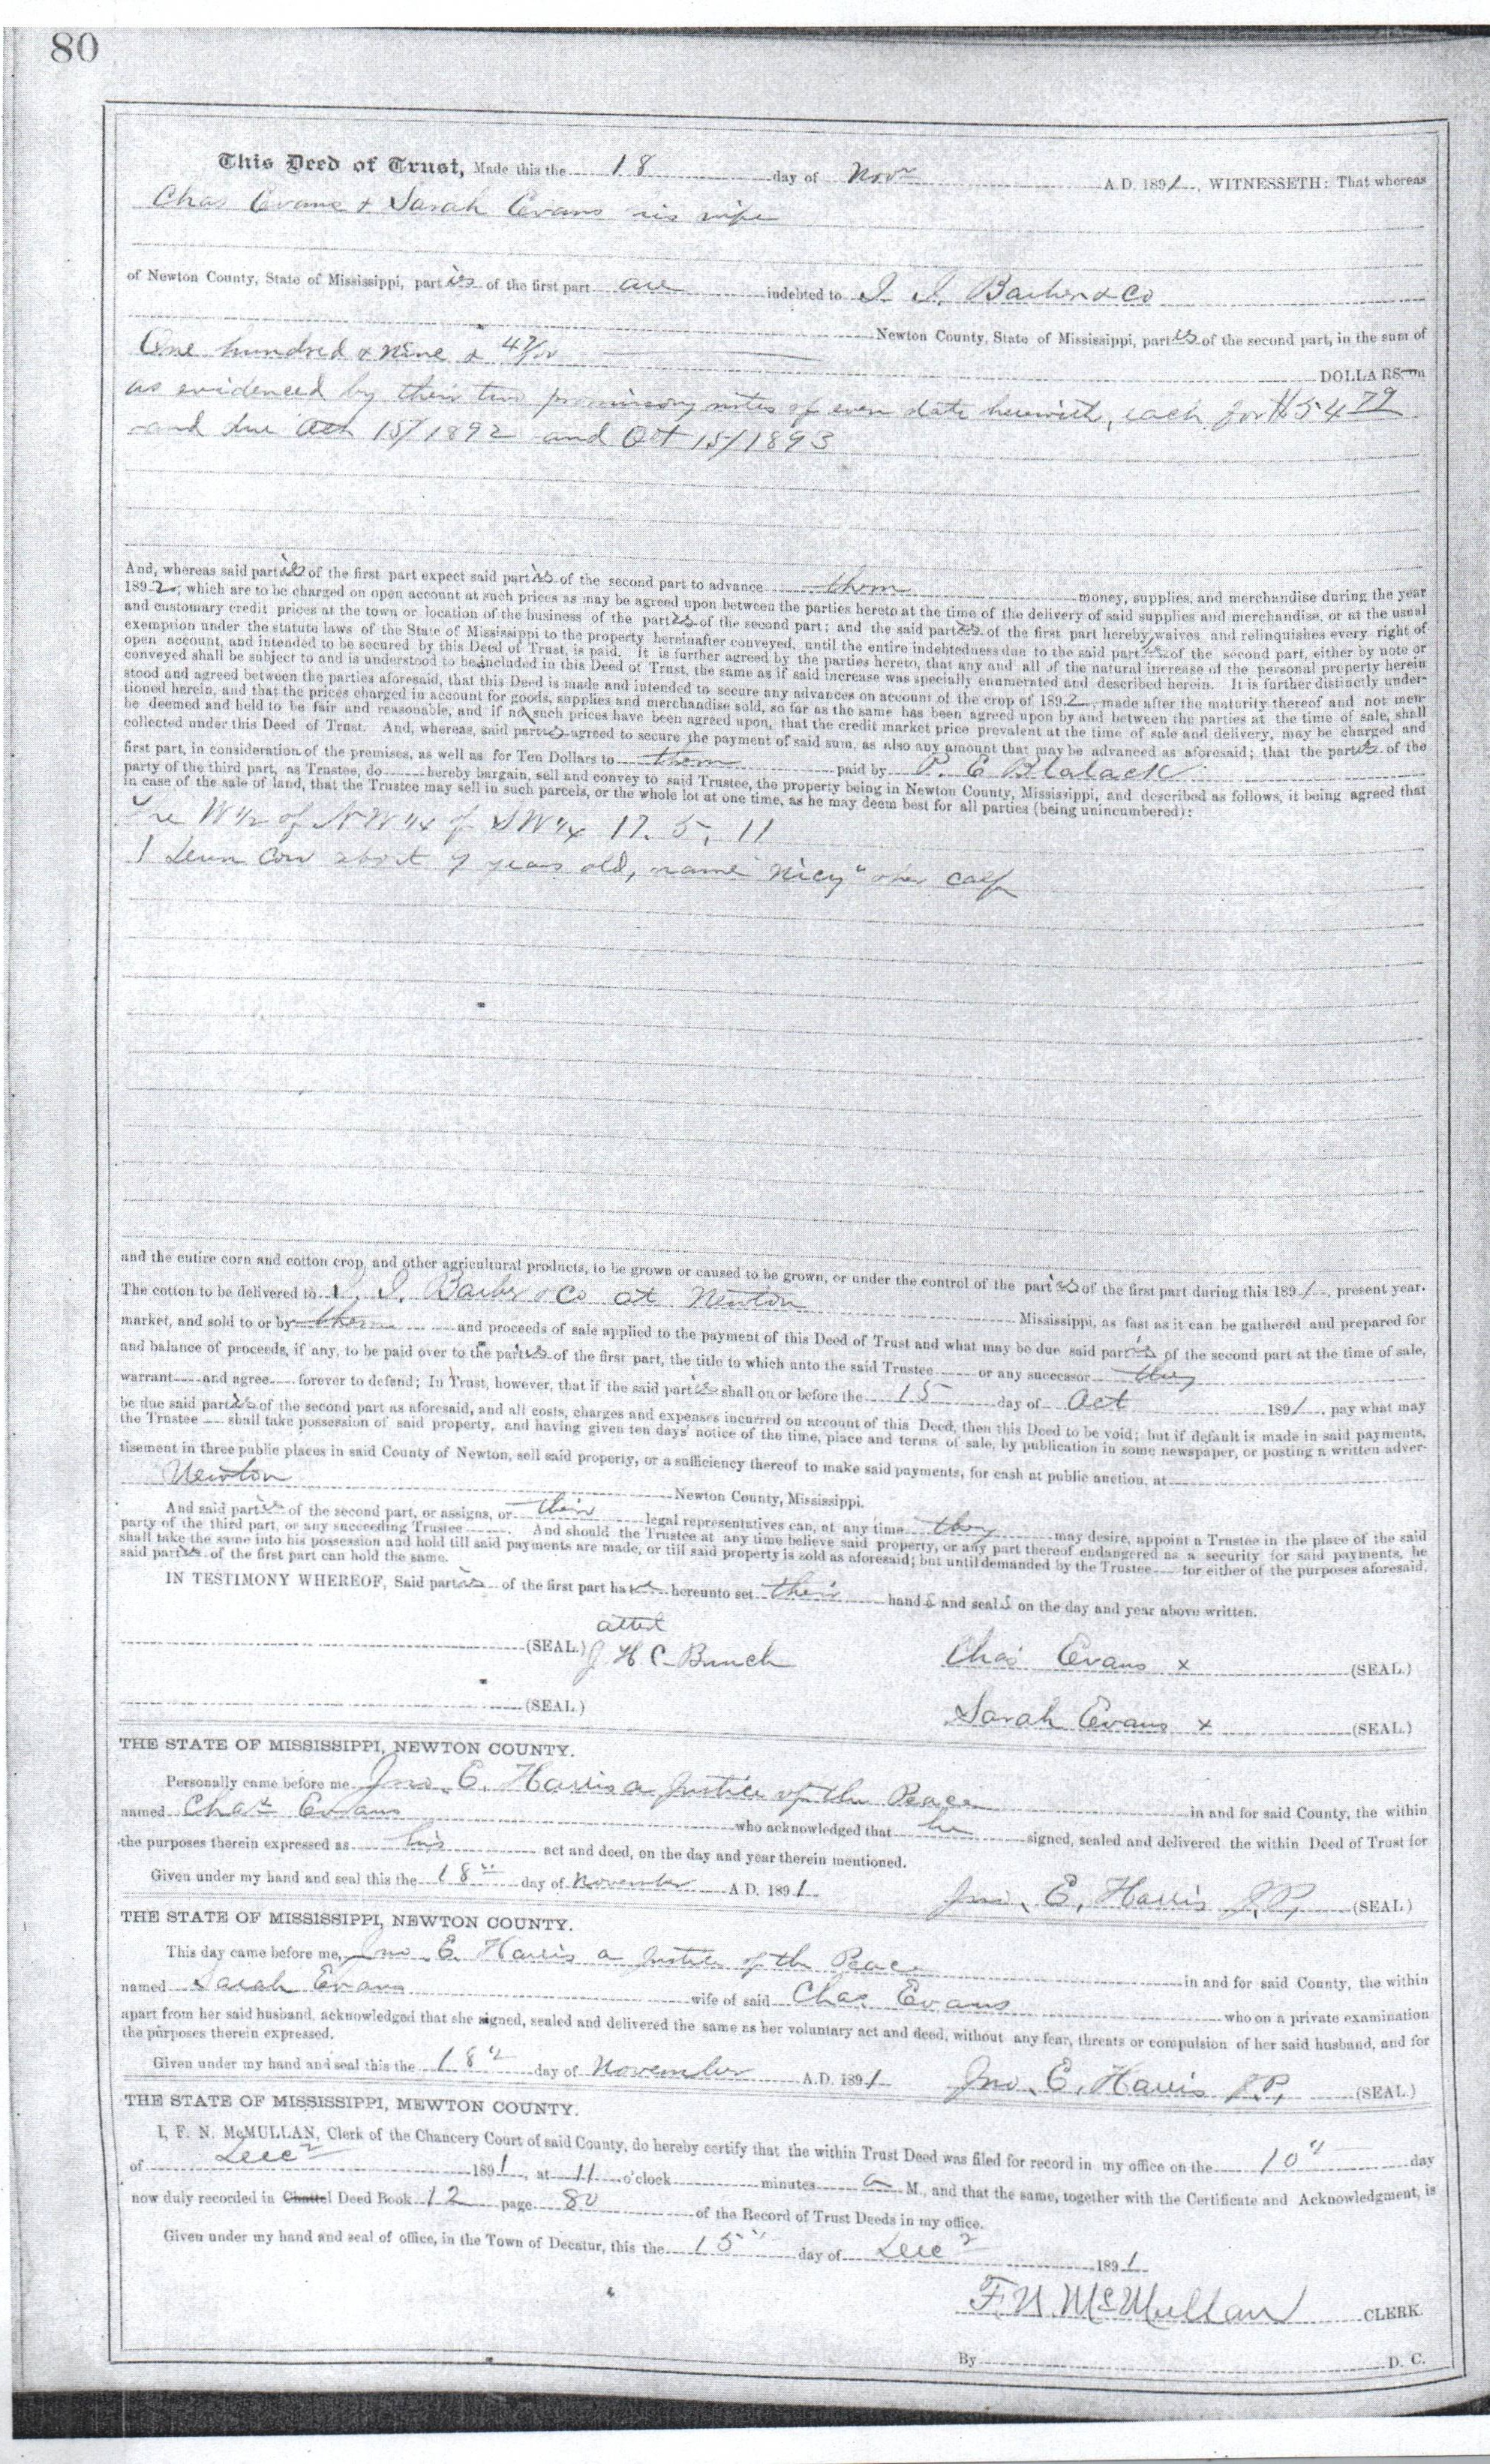 80
This Deed of Trust, Made this the 18 day of Novr A.D. 1891, WITNESSETH: That whereas
Chas Evans & Sarah Evans his wife
of Newton County, State of Mississippi, parties of the first part are indebted to I. I. Barber & Co
Newton County, State of Mississippi, parties of the second part, in the sum of
One hundred & nine & 47/100 DOLLARS on
as evidenced by their two promissory notes of even date herewith, each for $54 79
and due Oct 15/1892 and Oct 15/1893
And, whereas said parties of the first part expect said parties of the second part to advance them money, supplies, and merchandise during the year
1892, which are to be charged on open account at such prices as may be agreed upon between the parties hereto at the time of the delivery of said supplies and merchandise, or at the usual
and customary credit prices at the town or location of the business of the parties of the second part; and the said parties of the first part hereby waives and relinquishes every right of
exemption under the statute laws of the State of Mississippi to the property hereinafter conveyed, until the entire indebtedness due to the said parties of the second part, either by note or
open account, and intended to be secured by this Deed of Trust, is paid. It is further agreed by the parties hereto, that any and all of the natural increase of the personal property herein
conveyed shall be subject to and is understood to be included in this Deed of Trust, the same as if said increase was specially enumerated and described herein. It is further distinctly under-
stood and agreed between the parties aforesaid, that this Deed is made and intended to secure any advances on account of the crop of 1892, made after the maturity thereof and not men-
tioned herein, and that the prices charged in account for goods, supplies and merchandise sold, so far as the same has been agreed upon by and between the parties at the time of sale, shall
be deemed and held to be fair and reasonable, and if no such prices have been agreed upon, that the credit market price prevalent at the time of sale and delivery, may be charged and
collected under this Deed of Trust. And, whereas, said parties agreed to secure the payment of said sum, as also any amount that may be advanced as aforesaid; that the parties of the
first part, in consideration of the premises, as well as for Ten Dollars to them paid by P. E Blalack
party of the third part, as Trustee, do hereby bargain, sell and convey to said Trustee, the property being in Newton County, Mississippi, and described as follows, it being agreed that
in case of the sale of land, that the Trustee may sell in such parcels, or the whole lot at one time, as he may deem best for all parties (being unincumbered):
The W 1/2 of NW 1/4 of SW 1/4 17. 5. 11
1 cow about 7 years old, name "Nicy" calf
and the entire corn and cotton crop, and other agricultural products, to be grown or caused to be grown, or under the control of the parties of the first part during this 1891, present year.
The cotton to be delivered to I. I. Barber & Co at Newton Mississippi, as fast as it can be gathered and prepared for
market, and sold to or by them and proceeds of sale applied to the payment of this Deed of Trust and what may be due said parties of the second part at the time of sale,
and balance of proceeds, if any, to be paid over to the parties of the first part, the title to which unto the said Trustee or any successor they
warrant and agree forever to defend; In Trust, however, that if the said parties shall on or before the 15 day of Oct 1891, pay what may
be due said parties of the second part as aforesaid, and all costs, charges and expenses incurred on account of this Deed, then this Deed to be void; but if default is made in said payments,
the Trustee shall take possession of said property, and having given ten days' notice of the time, place and terms of sale, by publication in some newspaper, or posting a written adver-
tisement in three public places in said County of Newton, sell said property, or a sufficiency thereof to make said payments, for cash at public auction, at
Newton Newton County, Mississippi.
And said parties of the second part, or assigns, or their legal representatives can, at any time they may desire, appoint a Trustee in the place of the said
party of the third part, or any succeeding Trustee. And should the Trustee at any time believe said property, or any part thereof endangered as a security for said payments, he
shall take the same into his possession and hold till said payments are made, or till said property is sold as aforesaid; but until demanded by the Trustee for either of the purposes aforesaid,
said parties of the first part can hold the same.
IN TESTIMONY WHEREOF, Said parties of the first part have hereunto set their hands and seals on the day and year above written.
attest
(SEAL.) J H C Bunch Chas Evans x (SEAL.)
(SEAL.) Sarah Evans x (SEAL.)
THE STATE OF MISSISSIPPI, NEWTON COUNTY.
Personally came before me Jno. E. Harris a Justice of the Peace in and for said County, the within
named Chas Evans who acknowledged that he signed, sealed and delivered the within Deed of Trust for
the purposes therein expressed as his act and deed, on the day and year therein mentioned.
Given under my hand and seal this the 18" day of November A.D. 1891 Jno. E. Harris J.P. (SEAL)
THE STATE OF MISSISSIPPI, NEWTON COUNTY.
This day came before me, Jno E. Harris a Justice of the Peace in and for said County, the within
named Sarah Evans wife of said Chas Evans who on a private examination
apart from her said husband, acknowledged that she signed, sealed and delivered the same as her voluntary act and deed, without any fear, threats or compulsion of her said husband, and for
the purposes therein expressed.
Given under my hand and seal this the 18" day of November A.D. 1891 Jno. E. Harris J.P. (SEAL.)
THE STATE OF MISSISSIPPI, MEWTON COUNTY.
I, F. N. McMULLAN, Clerk of the Chancery Court of said County, do hereby certify that the within Trust Deed was filed for record in my office on the 10" day
of Decr 1891, at 11 o'clock minutes a M., and that the same, together with the Certificate and Acknowledgment, is
now duly recorded in Chattel Deed Book 12 page 80 of the Record of Trust Deeds in my office.
Given under my hand and seal of office, in the Town of Decatur, this the 15" day of Decr 1891
F. N. McMullan CLERK.
By D. C.